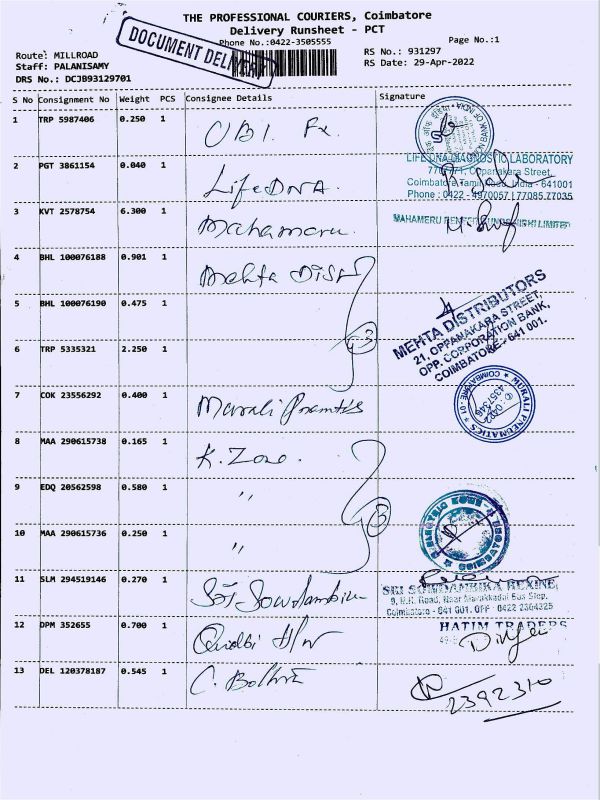 THE PROFESSIONAL COURIERS, Coimbatore
Delivery Runsheet - PCT
Phone No.:0422-3505555
Page No.:1
DOCUMENT DELIVERY
Route: MILLROAD
Staff: PALANISAMY
DRS No.: DCJB93129701
RS No.: 931297
RS Date: 29-Apr-2022
S No Consignment No Weight PCS Consignee Details Signature
1 TRP 5987406 0.250 1 UBI. Fx.
2 PGT 3861154 0.040 1 LifeDNA.
LIFE DNA DIAGNOSTIC LABORATORY
Oppanakara Street,
Coimbatore, Tamil Nadu, India - 641001
Phone : 0422 - 4970057 | 77085 77035
3 KVT 2578754 6.300 1 Mahameru.
MAHAMERU NIDHI LIMITED
4 BHL 100076188 0.901 1 Mehta Dist
5 BHL 100076190 0.475 1
6 TRP 5335321 2.250 1
3
MEHTA DISTRIBUTORS
21, OPPANAKARA STREET,
OPP. CORPORATION BANK,
COIMBATORE - 641 001.
7 COK 23556292 0.400 1 Murali
MURALI PNEUMATICS
COIMBATORE - 01
0422
4357346
8 MAA 290615738 0.165 1 K. Zone.
9 EDQ 20562598 0.580 1 "
10 MAA 290615736 0.250 1 "
3
11 SLM 294519146 0.270 1 Sri Sowdambika
SRI SOWDAMBIKA REXINE,
Road, Near Marakkadai Bus Stop,
Coimbatore - 641 001. OFF : 0422 2364325
12 DPM 352655 0.700 1
HATIM TRADERS
13 DEL 120378187 0.545 1 C. Bothra
2392310